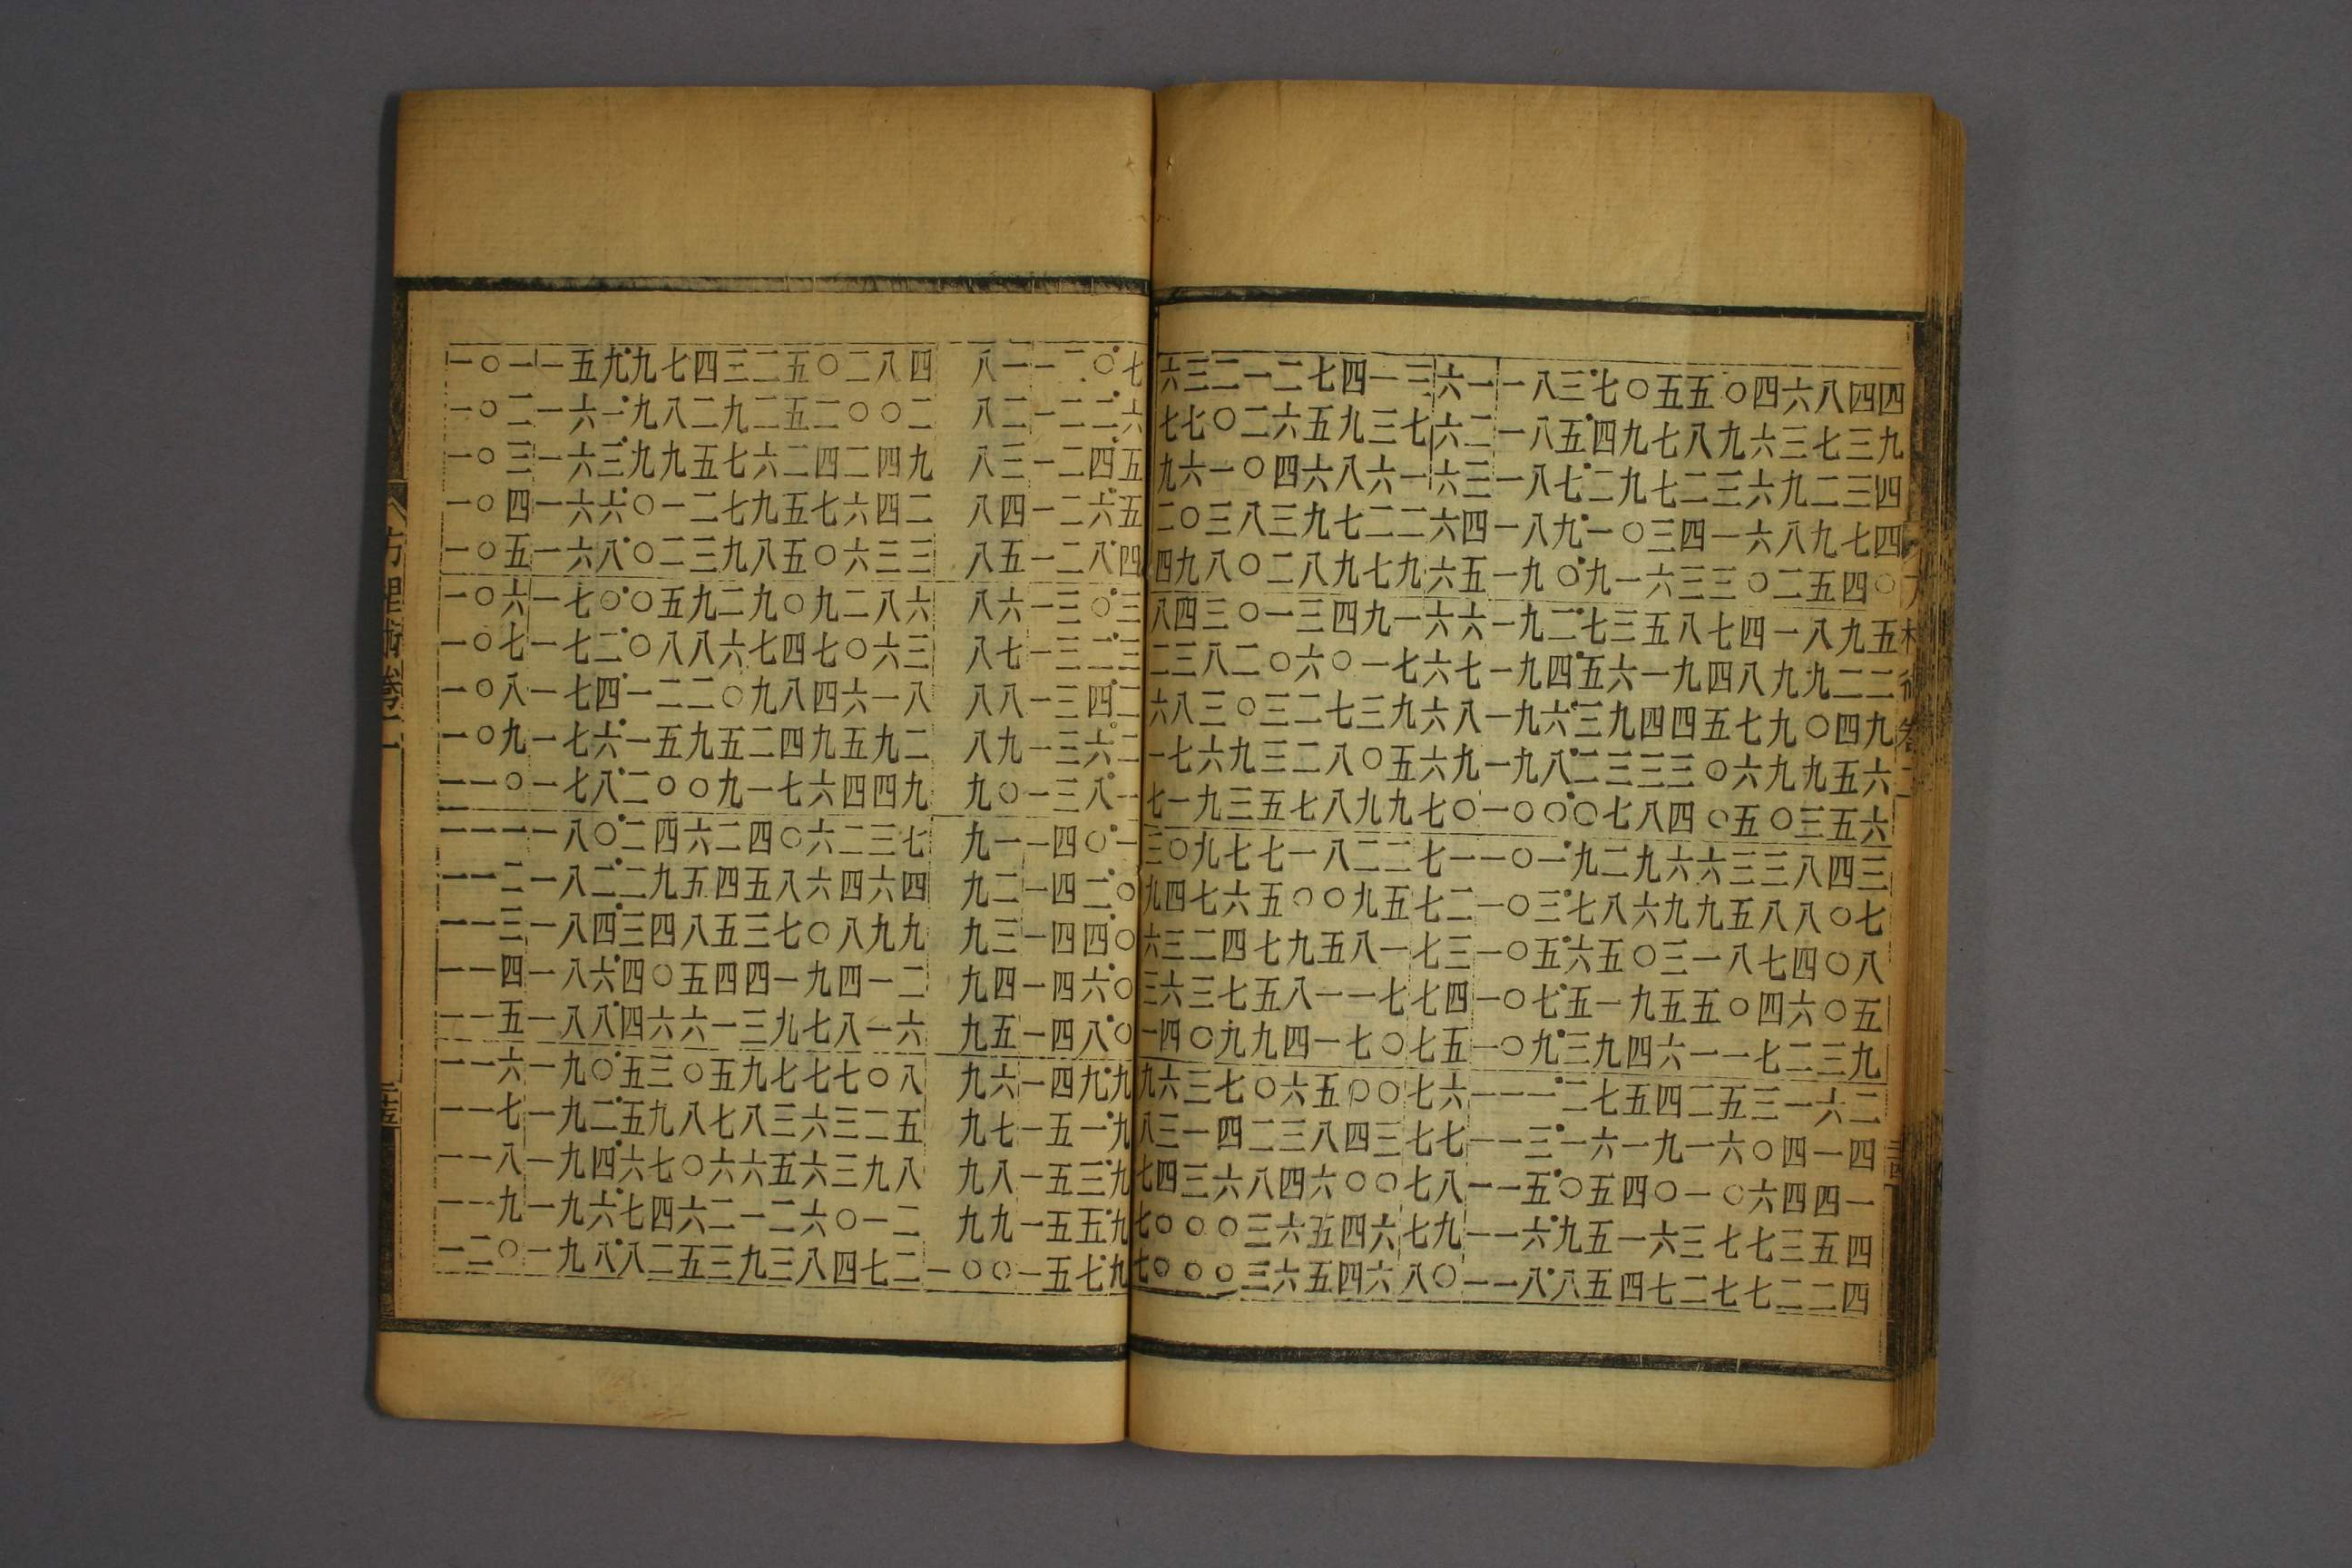 一〇一 一五九·九七四三二五〇二八四 八一 一二〇·七六三二一二七四一三 六一 一八三·七〇五五〇四六八四四
一〇二 一六一·九八二九二五二〇〇二 八二 一二二·六七七〇二六五九三七 六二 一八五·四九七八九六三七三九
一〇三 一六三·九九五七六二四二四九 八三 一二四·五九六一〇四六八六一 六三 一八七·二九七二三六九二三四
一〇四 一六六·〇一二七九五七六四二 八四 一二六·五二〇三八三九七二二 六四 一八九·一〇三四一六八九七四
一〇五 一六八·〇二三九八五〇六三三 八五 一二八·四四九八〇二八九七九 六五 一九〇·九一六三三〇二五四〇
一〇六 一七〇·〇五九二九〇九二八六 八六 一三〇·三八四三〇一三四九一 六六 一九二·七三五八七四一八九五
一〇七 一七二·〇八八六七四七〇六三 八七 一三二·三二三八二〇六〇一七 六七 一九四·五六一九四八九九二二
一〇八 一七四·一二二〇九八四六一八 八八 一三四·二六八三〇三二七三九 六八 一九六·三九四四五七九〇四九
一〇九 一七六·一五九五二四九五九二 八九 一三六·二一七六九三二八〇五 六九 一九八·二三三三〇六九九五六
一一〇 一七八·二〇〇九一七六四四九 九〇 一三八·一七一九三五七八九九 七〇 一〇〇·〇七八四〇五〇三五六
一一一 一八〇·二四六二四〇六二三七 九一 一四〇·一三〇九七七一八二二 七一 一〇一·九二九六六三三八四三
一一二 一八二·二九五四五八六四六四 九二 一四二·〇九四七六五〇〇九五 七二 一〇三·七八六九九五八八〇七
一一三 一八四·三四八五三七〇八九九 九三 一四四·〇六三二四七九五八一 七三 一〇五·六五〇三一八七四〇八
一一四 一八六·四〇五四四一九四一二 九四 一四六·〇三六三七五八一一七 七四 一〇七·五一九五五〇四六〇五
一一五 一八八·四六六一三九七八一六 九五 一四八·〇一四〇九九四一七〇 七五 一〇九·三九四六一一七二三九
一一六 一九〇·五三〇五九七七七〇八 九六 一四九·九九六三七〇六五〇〇 七六 一一一·二七五四二五三一六二
一一七 一九二·五九八七八三六三二五 九七 一五一·九八三一四二三八四三 七七 一一三·一六一九一六〇四一四
一一八 一九四·六七〇六六五六三九八 九八 一五三·九七四三六八四六〇〇 七八 一一五·〇五四〇一〇六四四一
一一九 一九六·七四六二一二六〇一二 九九 一五五·九七〇〇〇三六五四六 七九 一一六·九五一六三七七三五四
一二〇 一九八·八二五三九三八四七二 一〇〇 一五七·九七〇〇〇三六五四六 八〇 一一八·八五四七二七七二二四